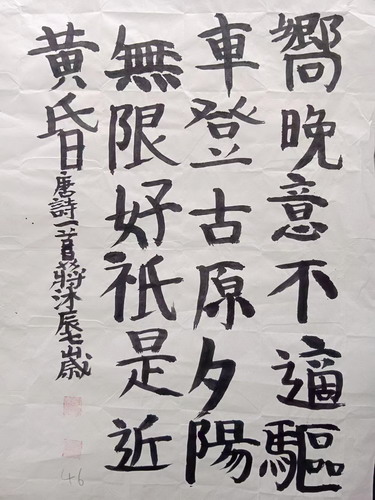 嚮晚意不適驅
車登古原夕陽
無限好祇是近
黄昏
唐詩一首蔣沐辰七歲
46